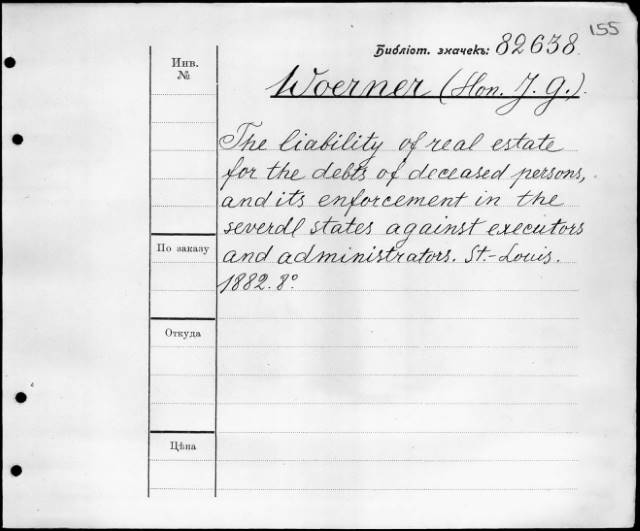 155
Библіот. значекъ: 82638
Инв.
№
Woerner (Hon. J. G.).
The liability of real estate
for the debts of deceased persons,
and its enforcement in the
several states against executors
and administrators. St.-Louis.
1882. 8º
По заказу
Откуда
Цѣна